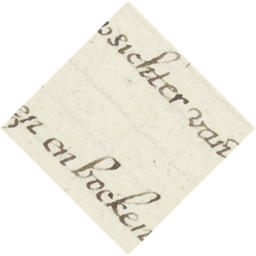 psichter van
en en bocken